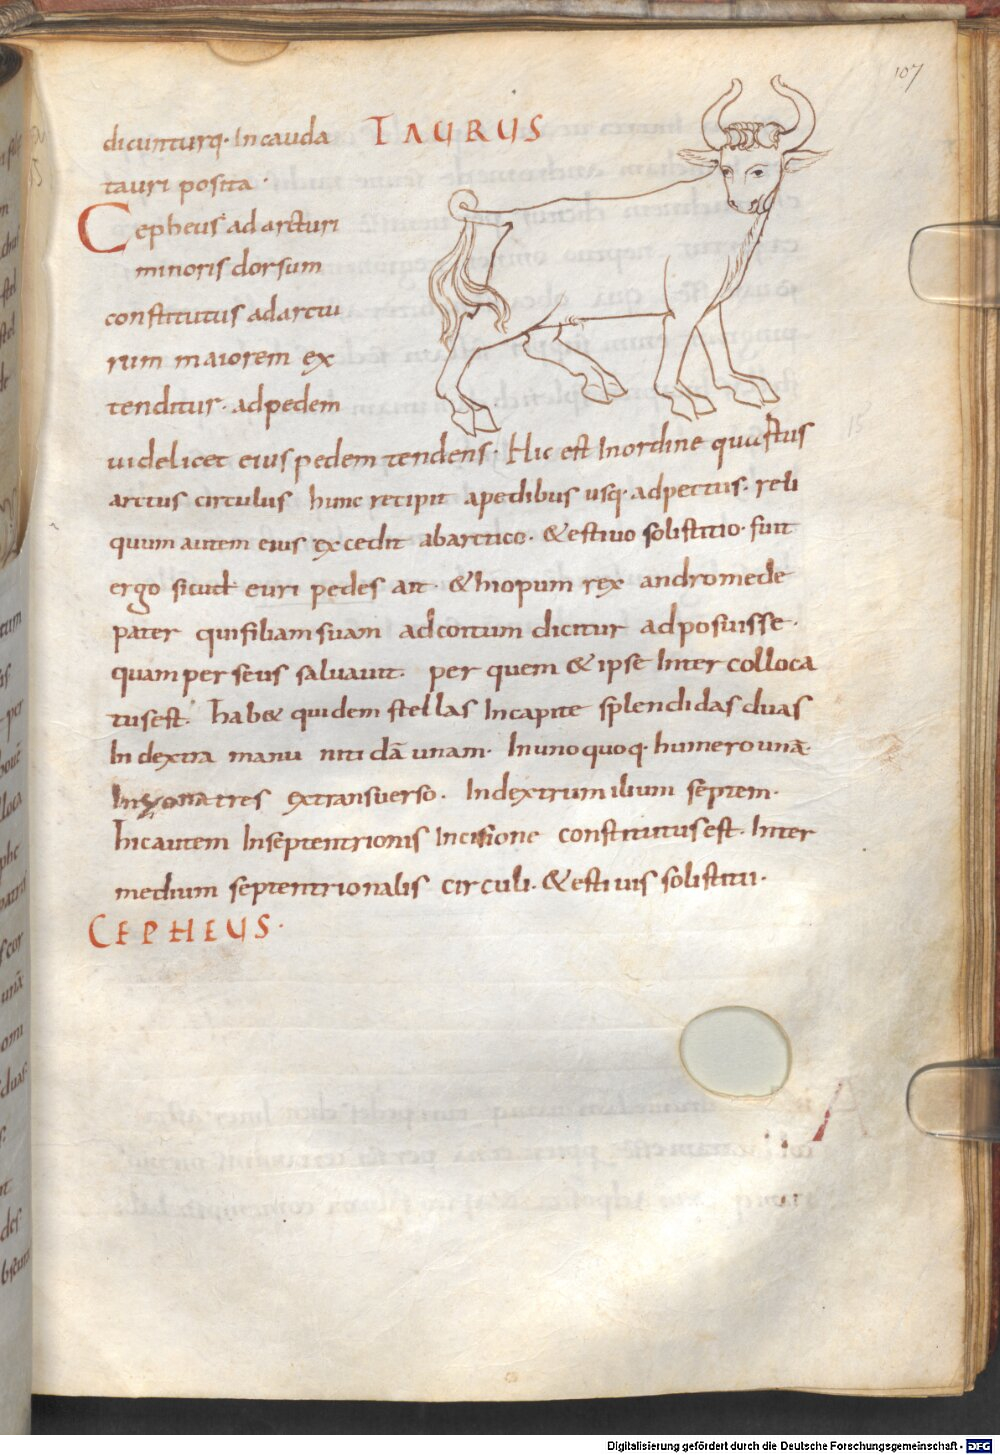 107
TAURUS
dicunturq· In cauda
tauri posita·
Cepheus ad arcturi
minoris dorsum
constitutus ad arctu
rum maiorem ex
tenditus· ad pedem
uidelicet eius pedem tendens· Hic est In ordine quartus
arctus circulus hunc recipit a pedibus usq· ad pectus· reli
quum autem eius excedit ab arctico· & estiuo solistitio· fuit
ergo sicut euri pedes ait &hiopum rex andromede
pater qui filiam suam ad coetum dicitur adposuisse·
quam perseus saluauit· per quem & ipse Inter colloca
tus est· hab& quidem stellas In capite splendidas duas
In dextra manu nitidā unam· In unoquoq· humero unā·
In zona tres ex transuerso· In dextrum ilium septem·
hic autem In septentrionis Incisione constitutus est· Inter
medium septentrionalis circuli· & estiuis solistitii·
CEPHEUS·
Digitalisierung gefördert durch die Deutsche Forschungsgemeinschaft - DFG